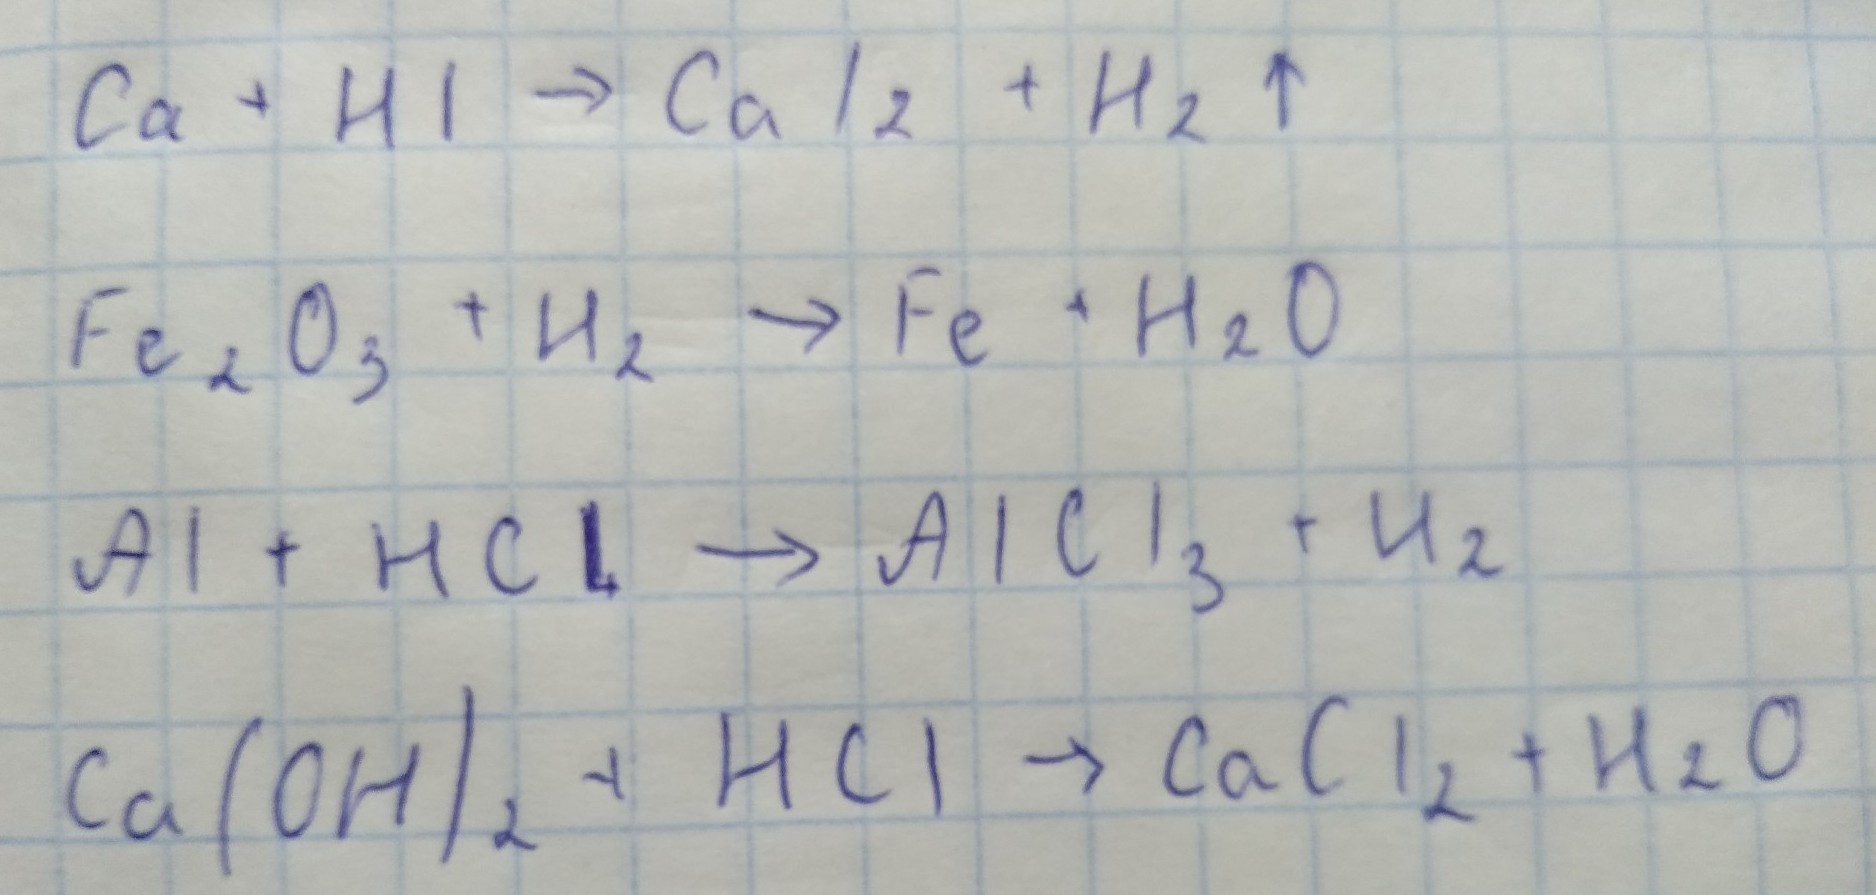 Ca + HI → CaI₂ + H₂ ↑
Fe₂O₃ + H₂ → Fe + H₂O
Al + HCl → AlCl₃ + H₂
Ca(OH)₂ + HCl → CaCl₂ + H₂O